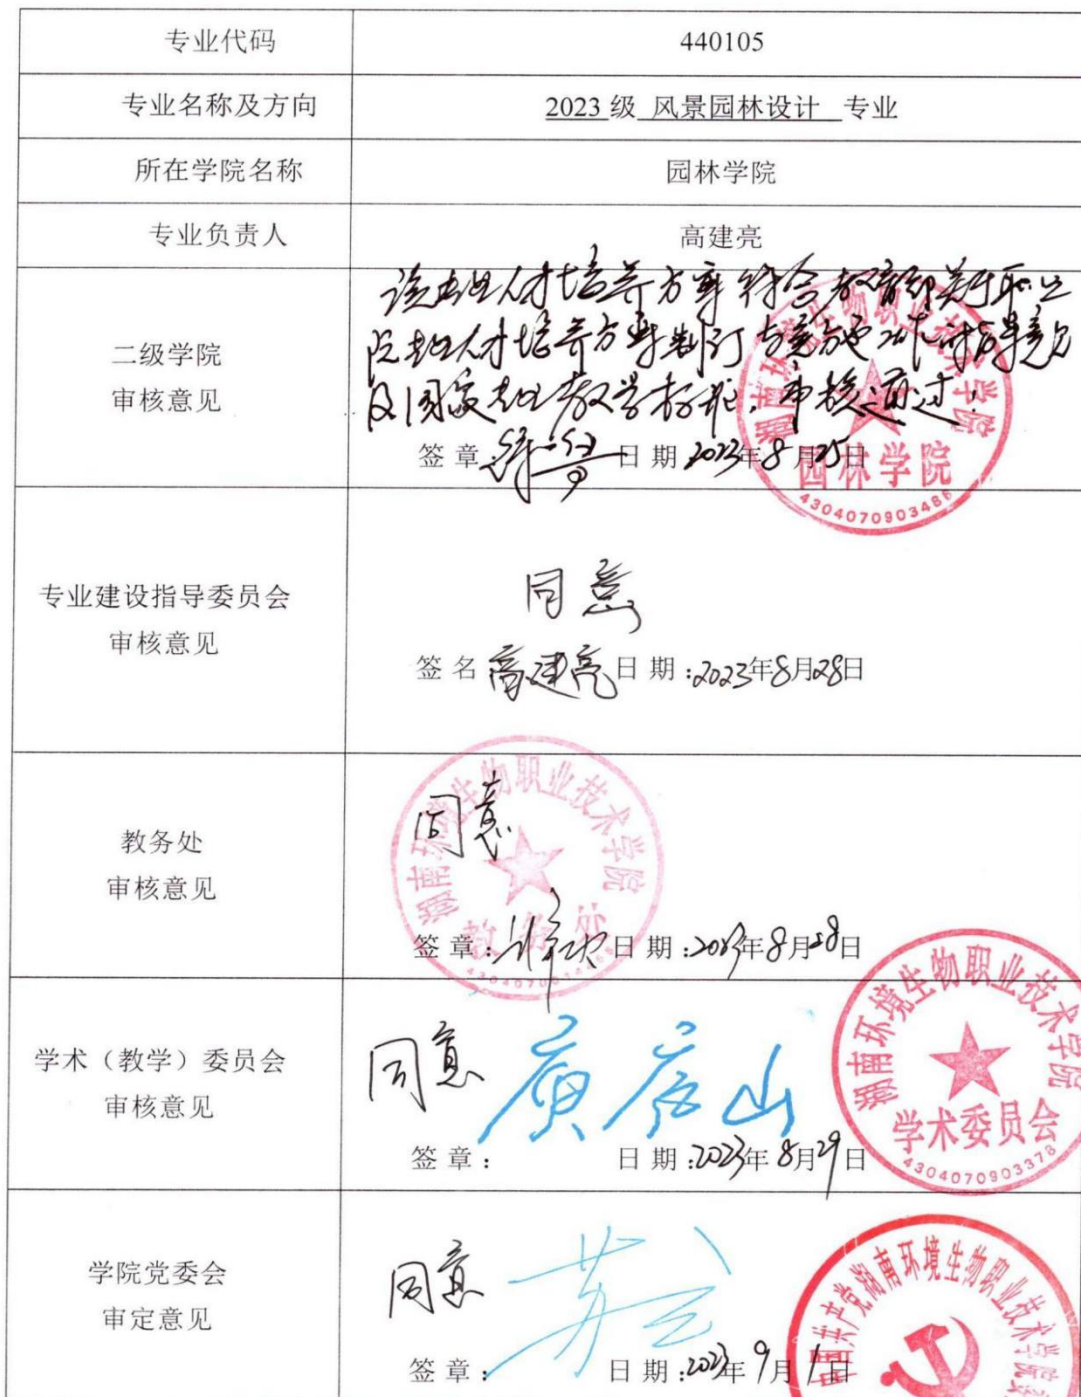 专业代码
440105
专业名称及方向
2023 级 风景园林设计 专业
所在学院名称
园林学院
专业负责人
高建亮
二级学院
审核意见
该专业人才培养方案符合教育部关于职业
院校人才培养方案制订与实施工作的指导意见
及国家专业教学标准，审核通过。
签 章 日 期 2023年8月25日
湖南环境生物职业技术学院
园林学院
4304070903486
专业建设指导委员会
审核意见
同意
签 名 高建亮 日 期：2023年8月28日
教务处
审核意见
同意
湖南环境生物职业技术学院
教务处
签 章： 日 期：2023年8月28日
学术（教学）委员会
审核意见
同意
签 章： 日 期：2023年8月29日
湖南环境生物职业技术学院
学术委员会
4304070903378
学院党委会
审定意见
同意
签 章： 日 期：2023年9月1日
中国共产党湖南环境生物职业技术学院